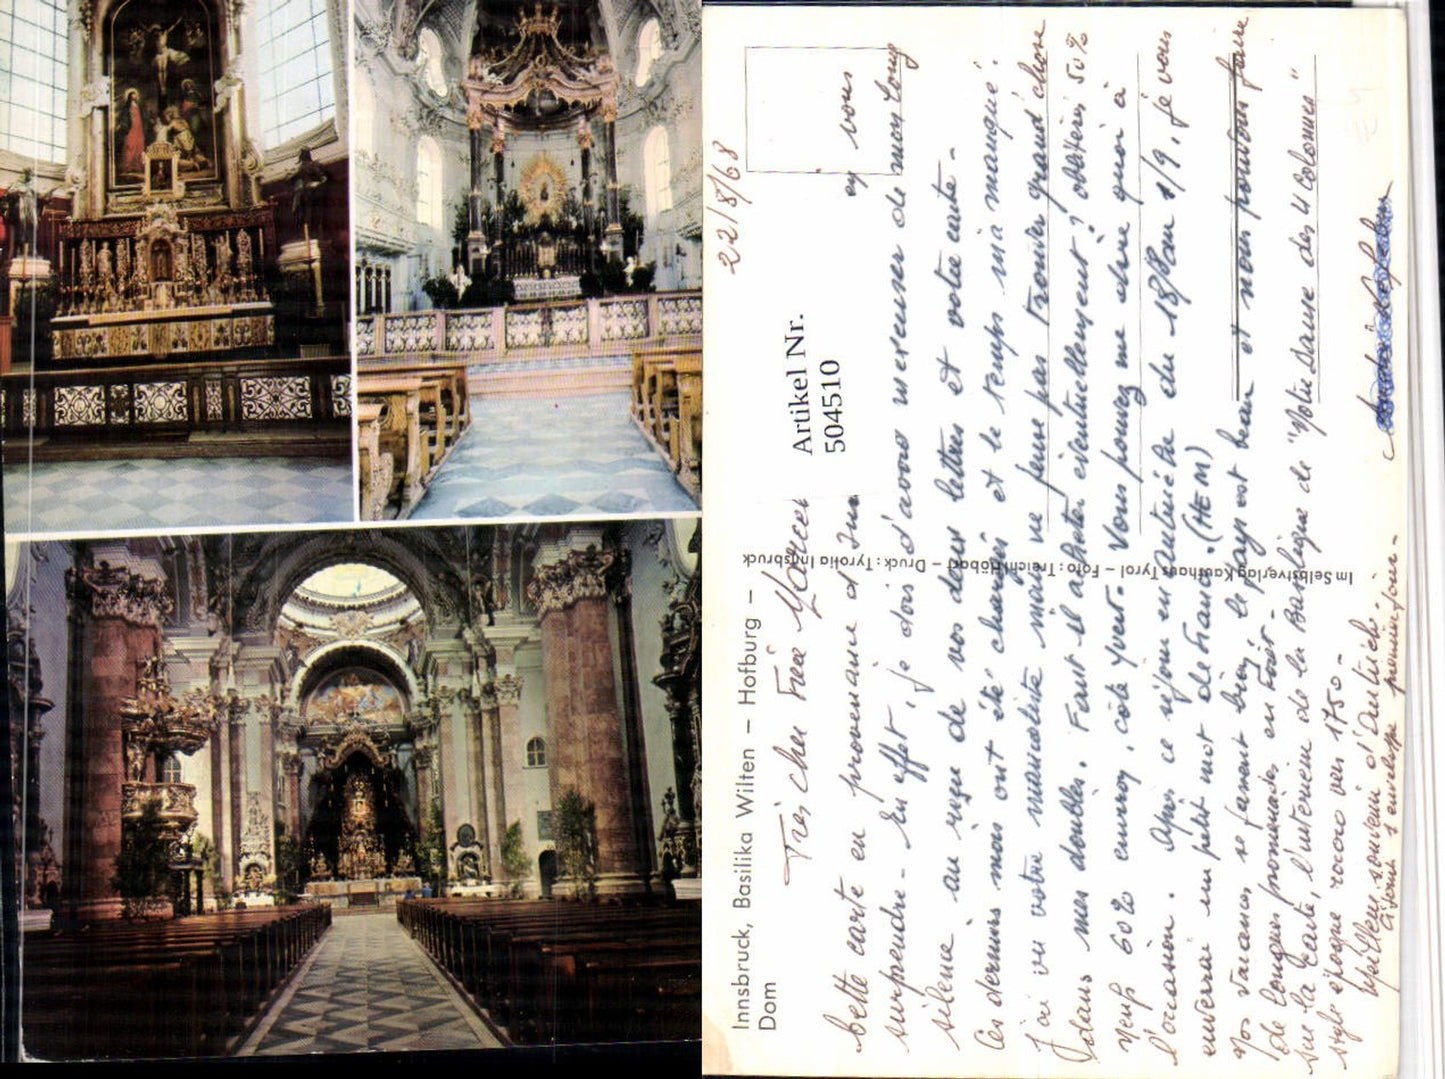 Innsbruck, Basilika Wilten — Hofburg —
Dom
22/8/68
Artikel Nr.
504510
Im Selbstverlag Kaufhaus Tyrol – Foto: Treichl Höbart – Druck: Tyrolia Innsbruck
Très cher Frère Marcel
Cette carte en provenance d'Inns en vous
surprendre. En effet, je dois d'abord m'excuser de mon long
silence au sujet de vos deux lettres et votre carte.
Ces derniers mois ont été changés et le temps m'a manqué.
J'ai vu votre mancoliste mais ne pense pas trouver grand'chose
dans mes doubles. Faut-il acheter éventuellement ? obtiens 50%
Neufs 60% env, côté Yvert. Vous pouvez me dire quoi à
l'occasion. Après ce séjour en Autriche du 18/8 au 1/9, je vous
enverrai un petit mot de France. (HEM)
Nos vacances se passent bien, le pays est beau et nous pouvons faire
de longues promenades en forêt.
Sur la carte, l'intérieur de la Basilique de "Notre Dame des 4 colonnes"
style époque rococo vers 1750.
Meilleur souvenir d'Autriche.
Ci-joint 1 enveloppe premier jour.